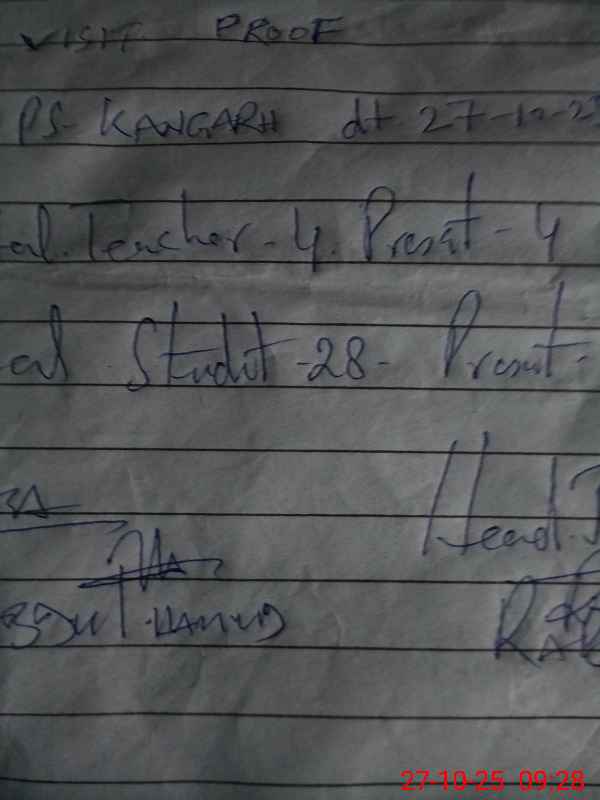 VISIT PROOF
PS- KANGARH dt. 27-10-25
al. Teacher - 4. Present - 4
al Studnt -28- Present -
Head.
27-10-25 09:28